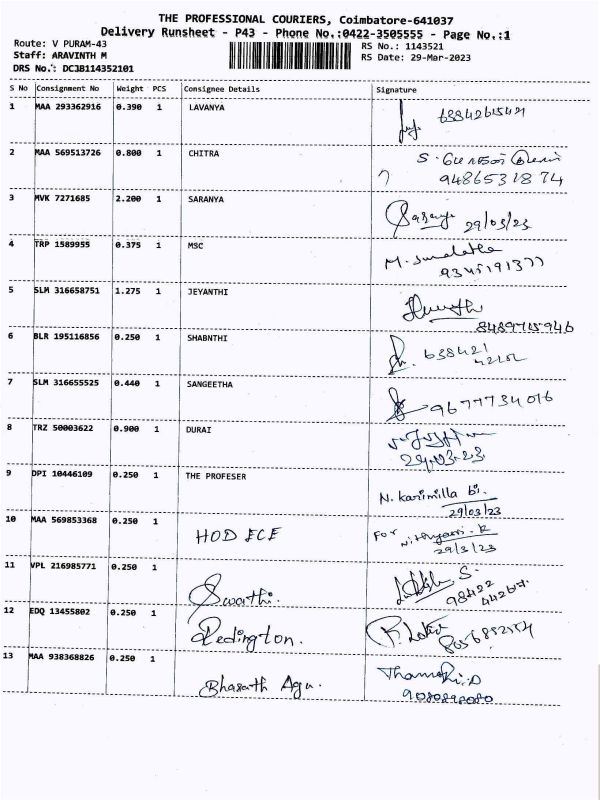 THE PROFESSIONAL COURIERS, Coimbatore-641037
Delivery Runsheet - P43 - Phone No.:0422-3505555 - Page No.:1
Route: V PURAM-43 RS No.: 1143521
Staff: ARAVINTH M RS Date: 29-Mar-2023
DRS No.: DCJB114352101
S No Consignment No Weight PCS Consignee Details Signature
1 MAA 293362916 0.390 1 LAVANYA
2 MAA 569513726 0.800 1 CHITRA
9486531874
3 MVK 7271685 2.200 1 SARANYA
29/03/23
4 TRP 1589955 0.375 1 MSC
9345191377
5 SLM 316658751 1.275 1 JEYANTHI
8489715946
6 BLR 195116856 0.250 1 SHABNTHI
638421
42102
7 SLM 316655525 0.440 1 SANGEETHA
9677734016
8 TRZ 50003622 0.900 1 DURAI
29.03.23
9 DPI 10446109 0.250 1 THE PROFESER
N. Karimilla bi.
29/03/23
10 MAA 569853368 0.250 1 HOD ECE For
29/3/23
11 VPL 216985771 0.250 1 Swathi. S.
98422
44267.
12 EDQ 13455802 0.250 1 Redington.
13 MAA 938368826 0.250 1 Bharath Agu.
9080898080